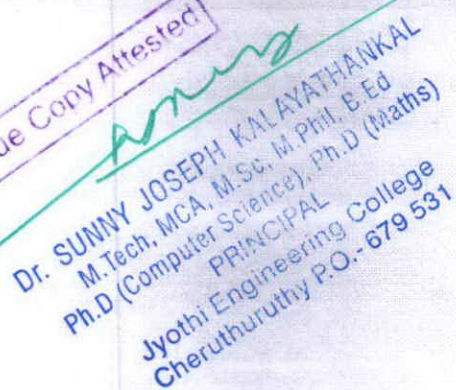 ue Copy Attested
Dr. SUNNY JOSEPH KALAYATHANKAL
M.Tech, MCA, M.Sc, M.Phil, B.Ed
Ph.D (Computer Science), Ph.D (Maths)
PRINCIPAL
Jyothi Engineering College
Cheruthuruthy P.O.- 679 531